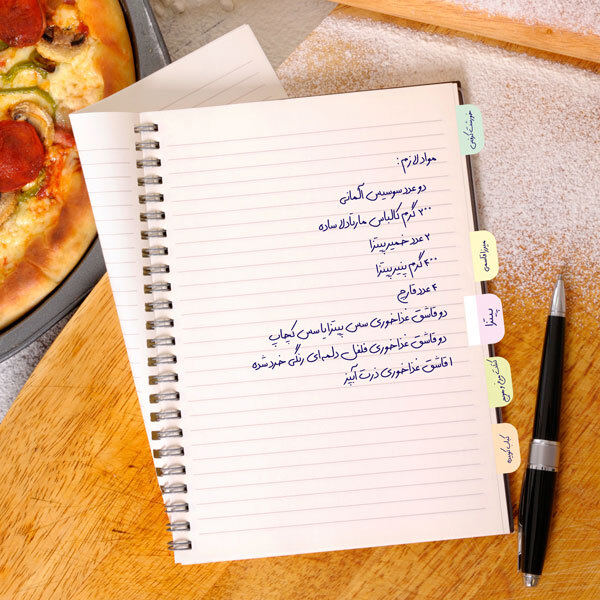 مواد لازم:
دو عدد سوسیس آلمانی
۲۰۰ گرم کالباس مارتادلا ساده
۲ عدد خمیر پیتزا
۴۰۰ گرم پنیر پیتزا
۴ عدد قارچ
دو قاشق غذاخوری سس پیتزا یا سس کچاپ
دو قاشق غذاخوری فلفل دلمه‌ای رنگی خرد شده
۱ قاشق غذاخوری ذرت آبپز
خورشت کرفس
میرزا قاسمی
پیتزا
کباب کوبیده